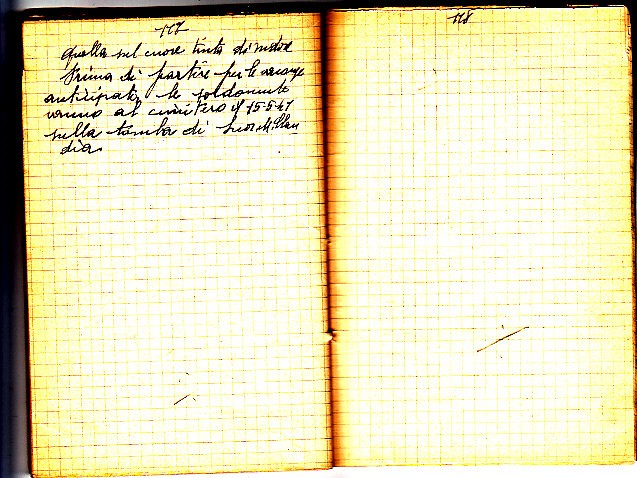 117
quella sul cuore tinta di
Prima di partire per le vacanze
anticipate, le
vanno al cimitero il 15-5-41
sulla tomba di Suor M. Clau
dia.
118